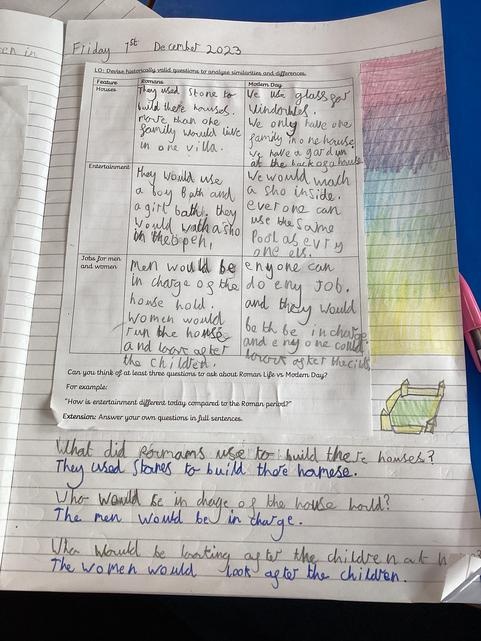 Friday 1st December 2023
LO: Devise historically valid questions to analyse similarities and differences.
Feature
Romans
Modern Day
Houses
They used Stone to
build there houses.
more than one
family would live
in one villa.
We use glass for
Windowles.
We only have one
family in one house
We have a gardun
at the back of a house
Entertainment
they would use
a boy Bath and
a girt bath. they
would wath a sho
in the open,
We would wath
a sho inside.
everone can
use the same
Pool as evry
one els.
Jobs for men
and women
Men would be
in charge of the
house hold.
Women would
run the house
and loock after
the children.
enyone can
do eny Job.
and they would
be th be in charge.
and eny one could
loock after the
Can you think of at least three questions to ask about Roman Life vs Modern Day?
For example:
"How is entertainment different today compared to the Roman period?"
Extension: Answer your own questions in full sentences.
What did Romams use to build there houses?
They used Stones to build there homese.
Who would be in chage of the house hould?
The men would be in charge.
Who would be looking after the children at
The women would look after the children.